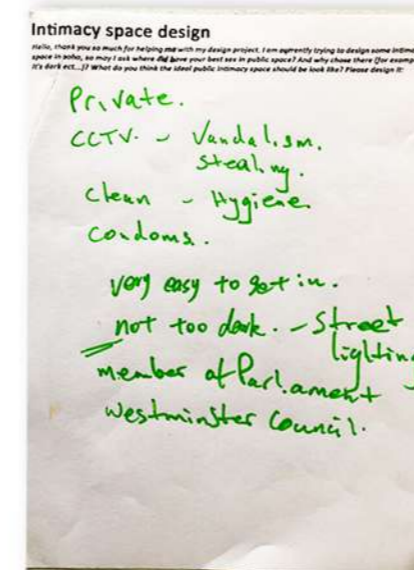 Intimacy space design
Hello, thank you so much for helping me with my design project, I am currently trying to design some intim
space in soho, so may I ask where did have your best sex in public space? And why chose there (for examp
it's dark ect...)? What do you think the ideal public intimacy space should be look like? Please design it:
Private.
CCTV. - Vandalism.
Stealing.
Clean - Hygiene.
Condoms.
very easy to get in.
not too dark. - Street
lighting
member of Parliament -
Westminster Council.